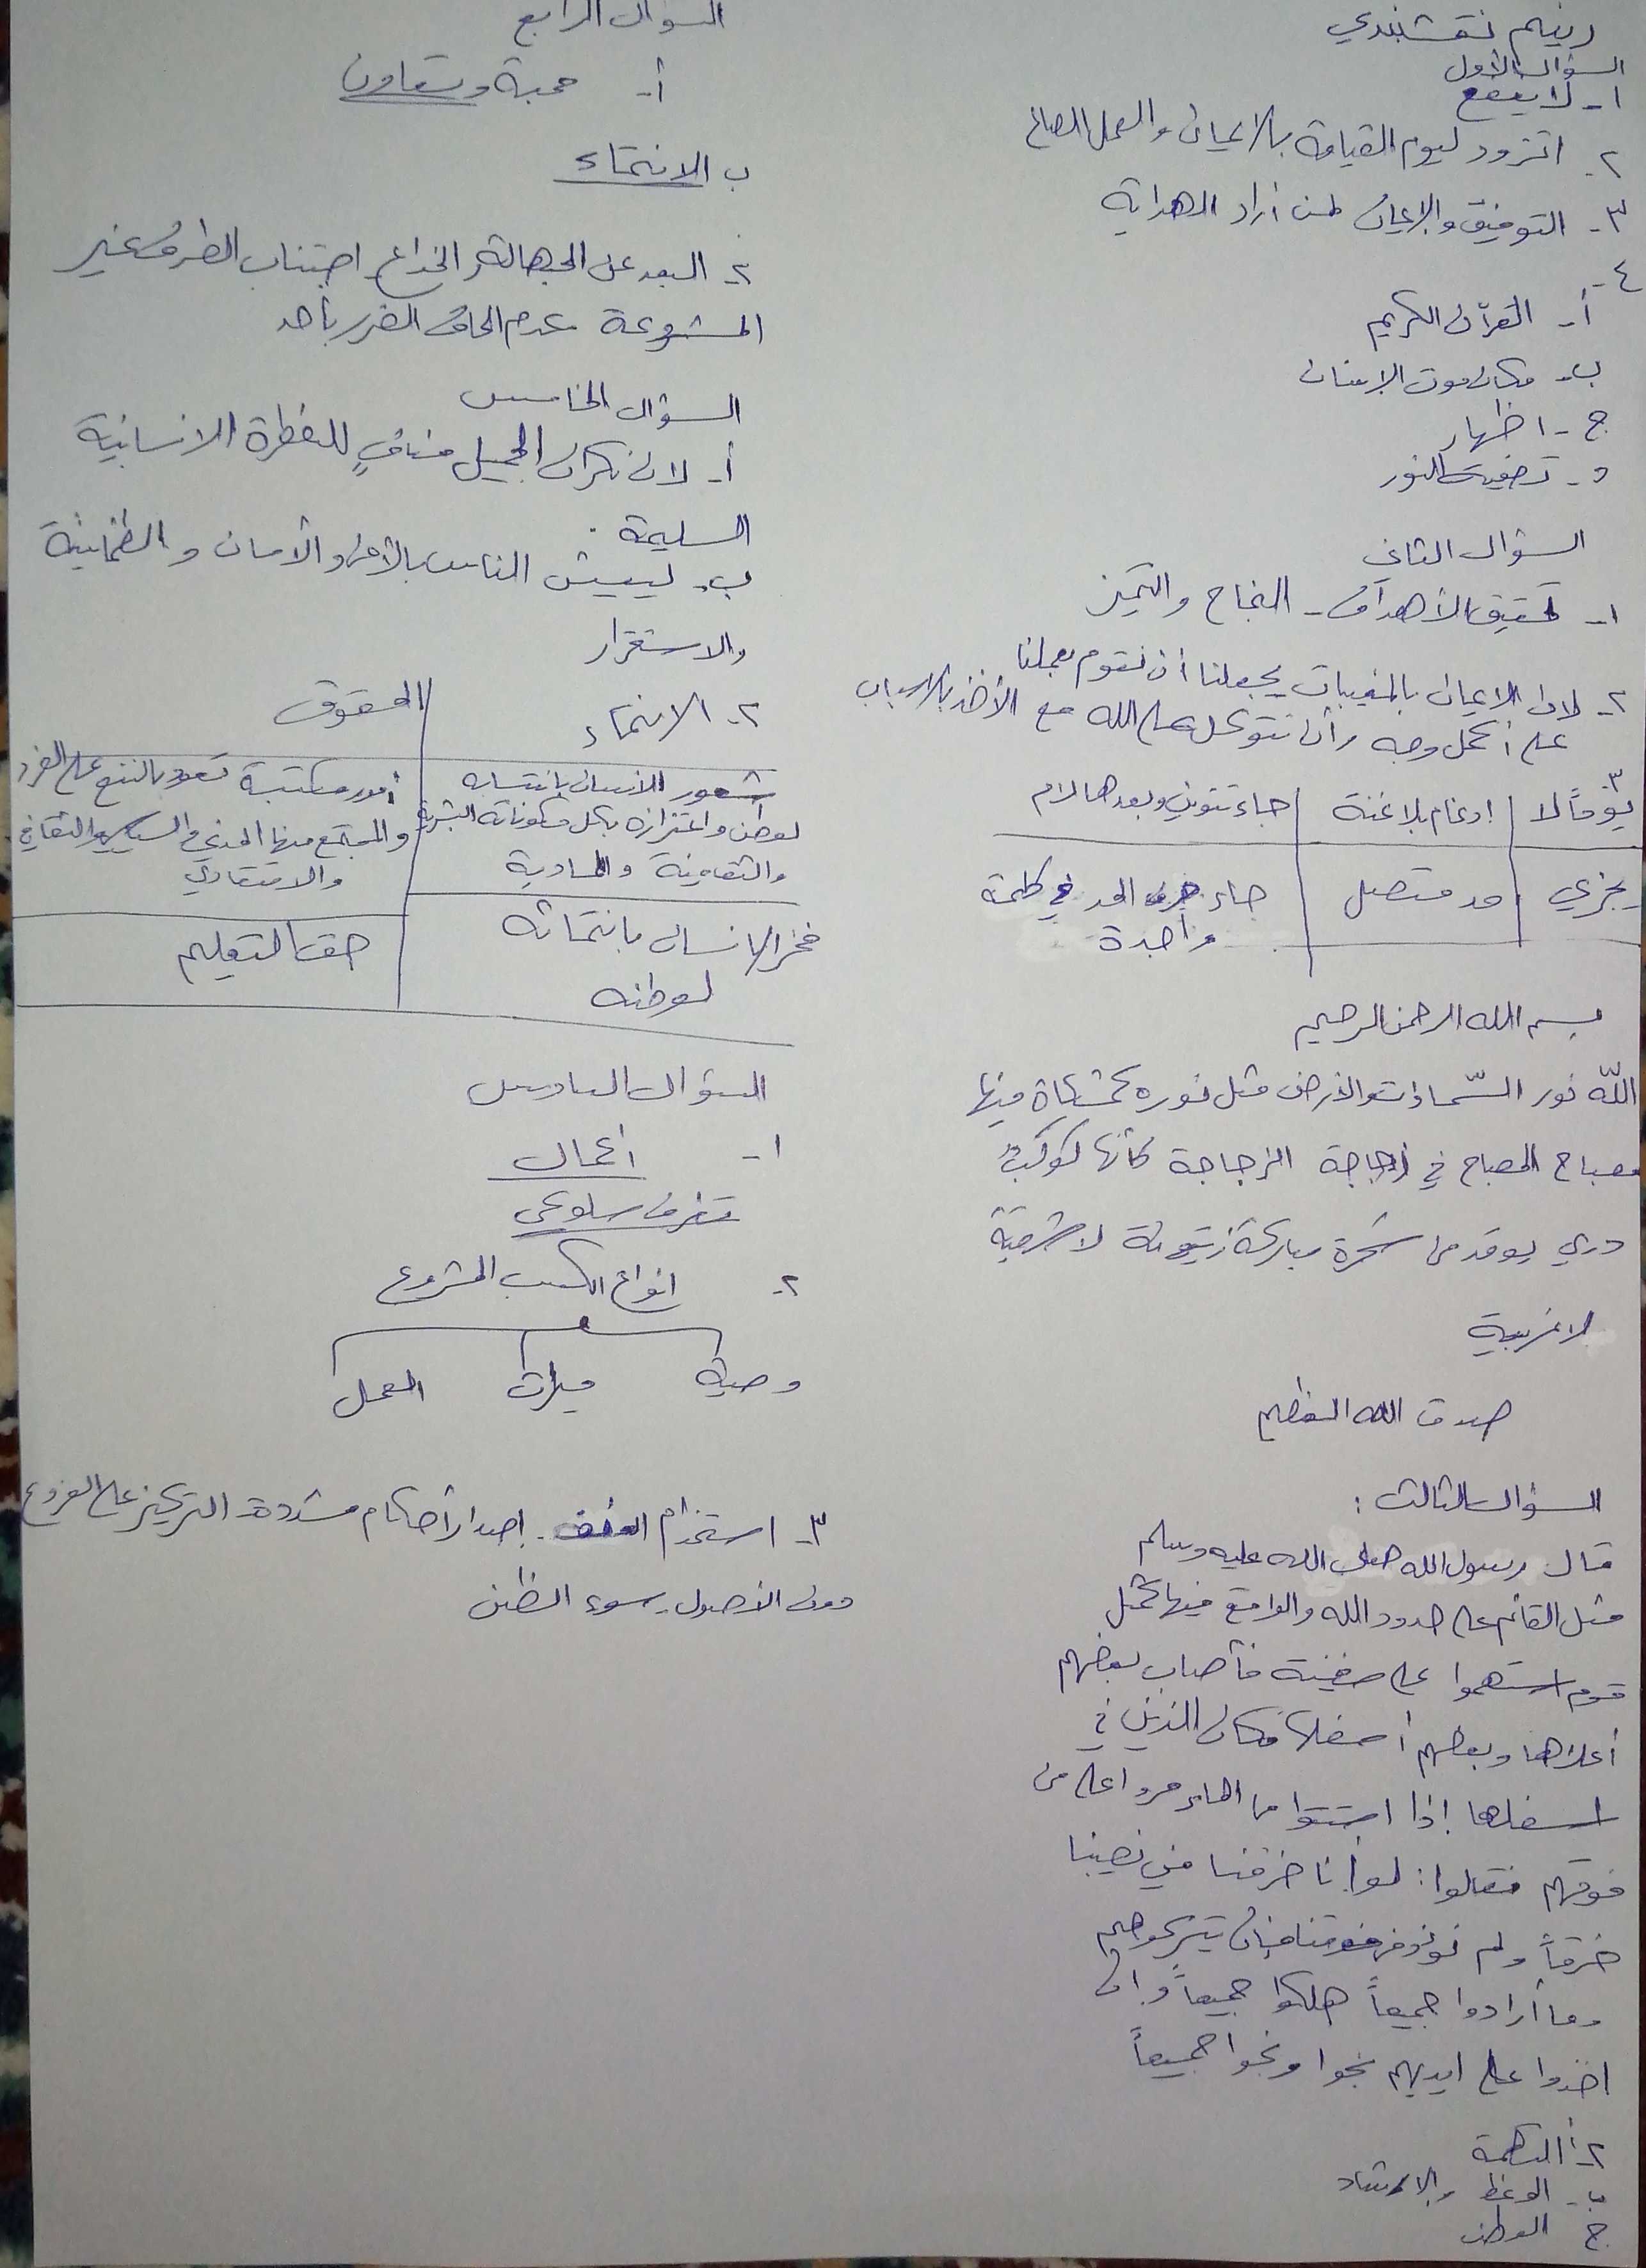 رينيم نقشبندي
السؤال الأول
١- لا ينفع
٢- اتزود ليوم القيامة بالايمان والعمل الصالح
٣- التوفيق والإيمان لمن أراد الهداية
٤-
أ- القرآن الكريم
ب- مكان موت الإنسان
ج- اظهار
د- تضعيف النور
السؤال الثاني
١- تحقيق الأهداف - النجاح والتميز
٢- لان الايمان بالمغيبات يجعلنا أن نقوم بعملنا
على أكمل وجه وأن نتوكل على الله مع الأخذ بالاسباب
٣-
يوماً لا | ادغام بلا غنة | جاء تنوين وبعدها لام
يجزي | مد متصل | جاء حرف المد في كلمة
واحدة
بسم الله الرحمن الرحيم
اللّه نور السّماوات والأرض مثل نوره كمشكاة فيها
مصباح المصباح في زجاجة الزجاجة كأنها كوكب
دري يوقد من شجرة مباركة زيتونة لا شرقية
لا غربية
صدق الله العظيم
السؤال الثالث :
قال رسول الله صلى الله عليه وسلم
مثل القائم على حدود الله والواقع فيها كمثل
قوم استهموا على سفينة فأصاب بعضهم
أعلاها وبعضهم أسفلها فكان الذين في
اسفلها إذا استقوا من الماء مروا على من
فوقهم فقالوا: لو أنا خرقنا في نصيبنا
خرقاً ولم نؤذ من فوقنا فإن يتركوهم
وما أرادوا جميعاً هلكوا جميعاً وإن
اخذوا على ايديهم نجوا ونجوا جميعاً
٢- أ الحكمة
ب- الوعظ والارشاد
ج الوطن
السؤال الرابع
أ- محبة وتعاون
ب الانتماء
٢- البعد عن الجهالة والخداع اجتناب الطرق غير
المشروعة عدم الحاق الضرر بأحد
السؤال الخامس
أ- لان نكران الجميل منافٍ للفطرة الانسانية
السليمة .
ب- ليعيش الناس بالأمن والأمان والطمأنينة
والاستقرار
٢- الانتماء | الحقوق
شعور الانسان بانتسابه | أمور مكتسبة تعود بالنفع على الفرد
لوطن واعتزازه بكل مكوناته البشرية | والمجتمع منها المدني والسياسي والثقافي
والثقافية والمادية | والاقتصادي
فخر الإنسان بانتمائه | حق التعليم
لوطنه
السؤال السادس
١- أعمال
تصرف سلوكي
٢- انواع الكسب المشروع
وصية ميراث العمل
٣- استخدام العنف - إصدار أحكام مشددة - التركيز على الفروع
دون الأصول - سوء الظن